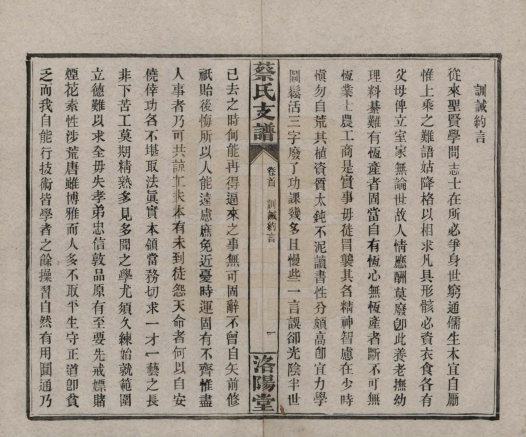 訓誡約言
從來聖賢學問志士在所必爭身世窮通儒生本宜自厲
惟上乘之難語姑降格以相求凡具形骸必資衣食各有
父母俾立室家無論世故人情應酬莫廢卽此養老撫幼
理料綦難有恆產者固當自有恆心無恆產者斷不可無
恆業士農工商是實事毋徒冒襲其名精神智慮在少時
愼勿自荒其植資質太鈍不泥讀書性分頗高卽宜力學
圖鬆活三字廢了功課幾多且慢些一言誤卻光陰半世
蔡氏支譜
卷首
訓誡約言
一
洛陽堂
已去之時何能再得過來之事無可固辭不曾自矢前修
祇貽後悔所以人能遠慮庶免近憂時運固有不齊惟盡
人事者乃可共諒工夫本有未到徒怨天命者何以自安
僥倖功名不堪取法眞實本領當務切求一才一藝之長
非下苦工莫期精熟多見多聞之學尤須久練始就範圍
立德難以求全毋失孝弟忠信敦品原有至要先戒嫖賭
煙花素性涉荒唐雖博雅而人多不取平生守正道卽貧
乏而我自能行技術皆學者之餘操習自然有用圓通乃